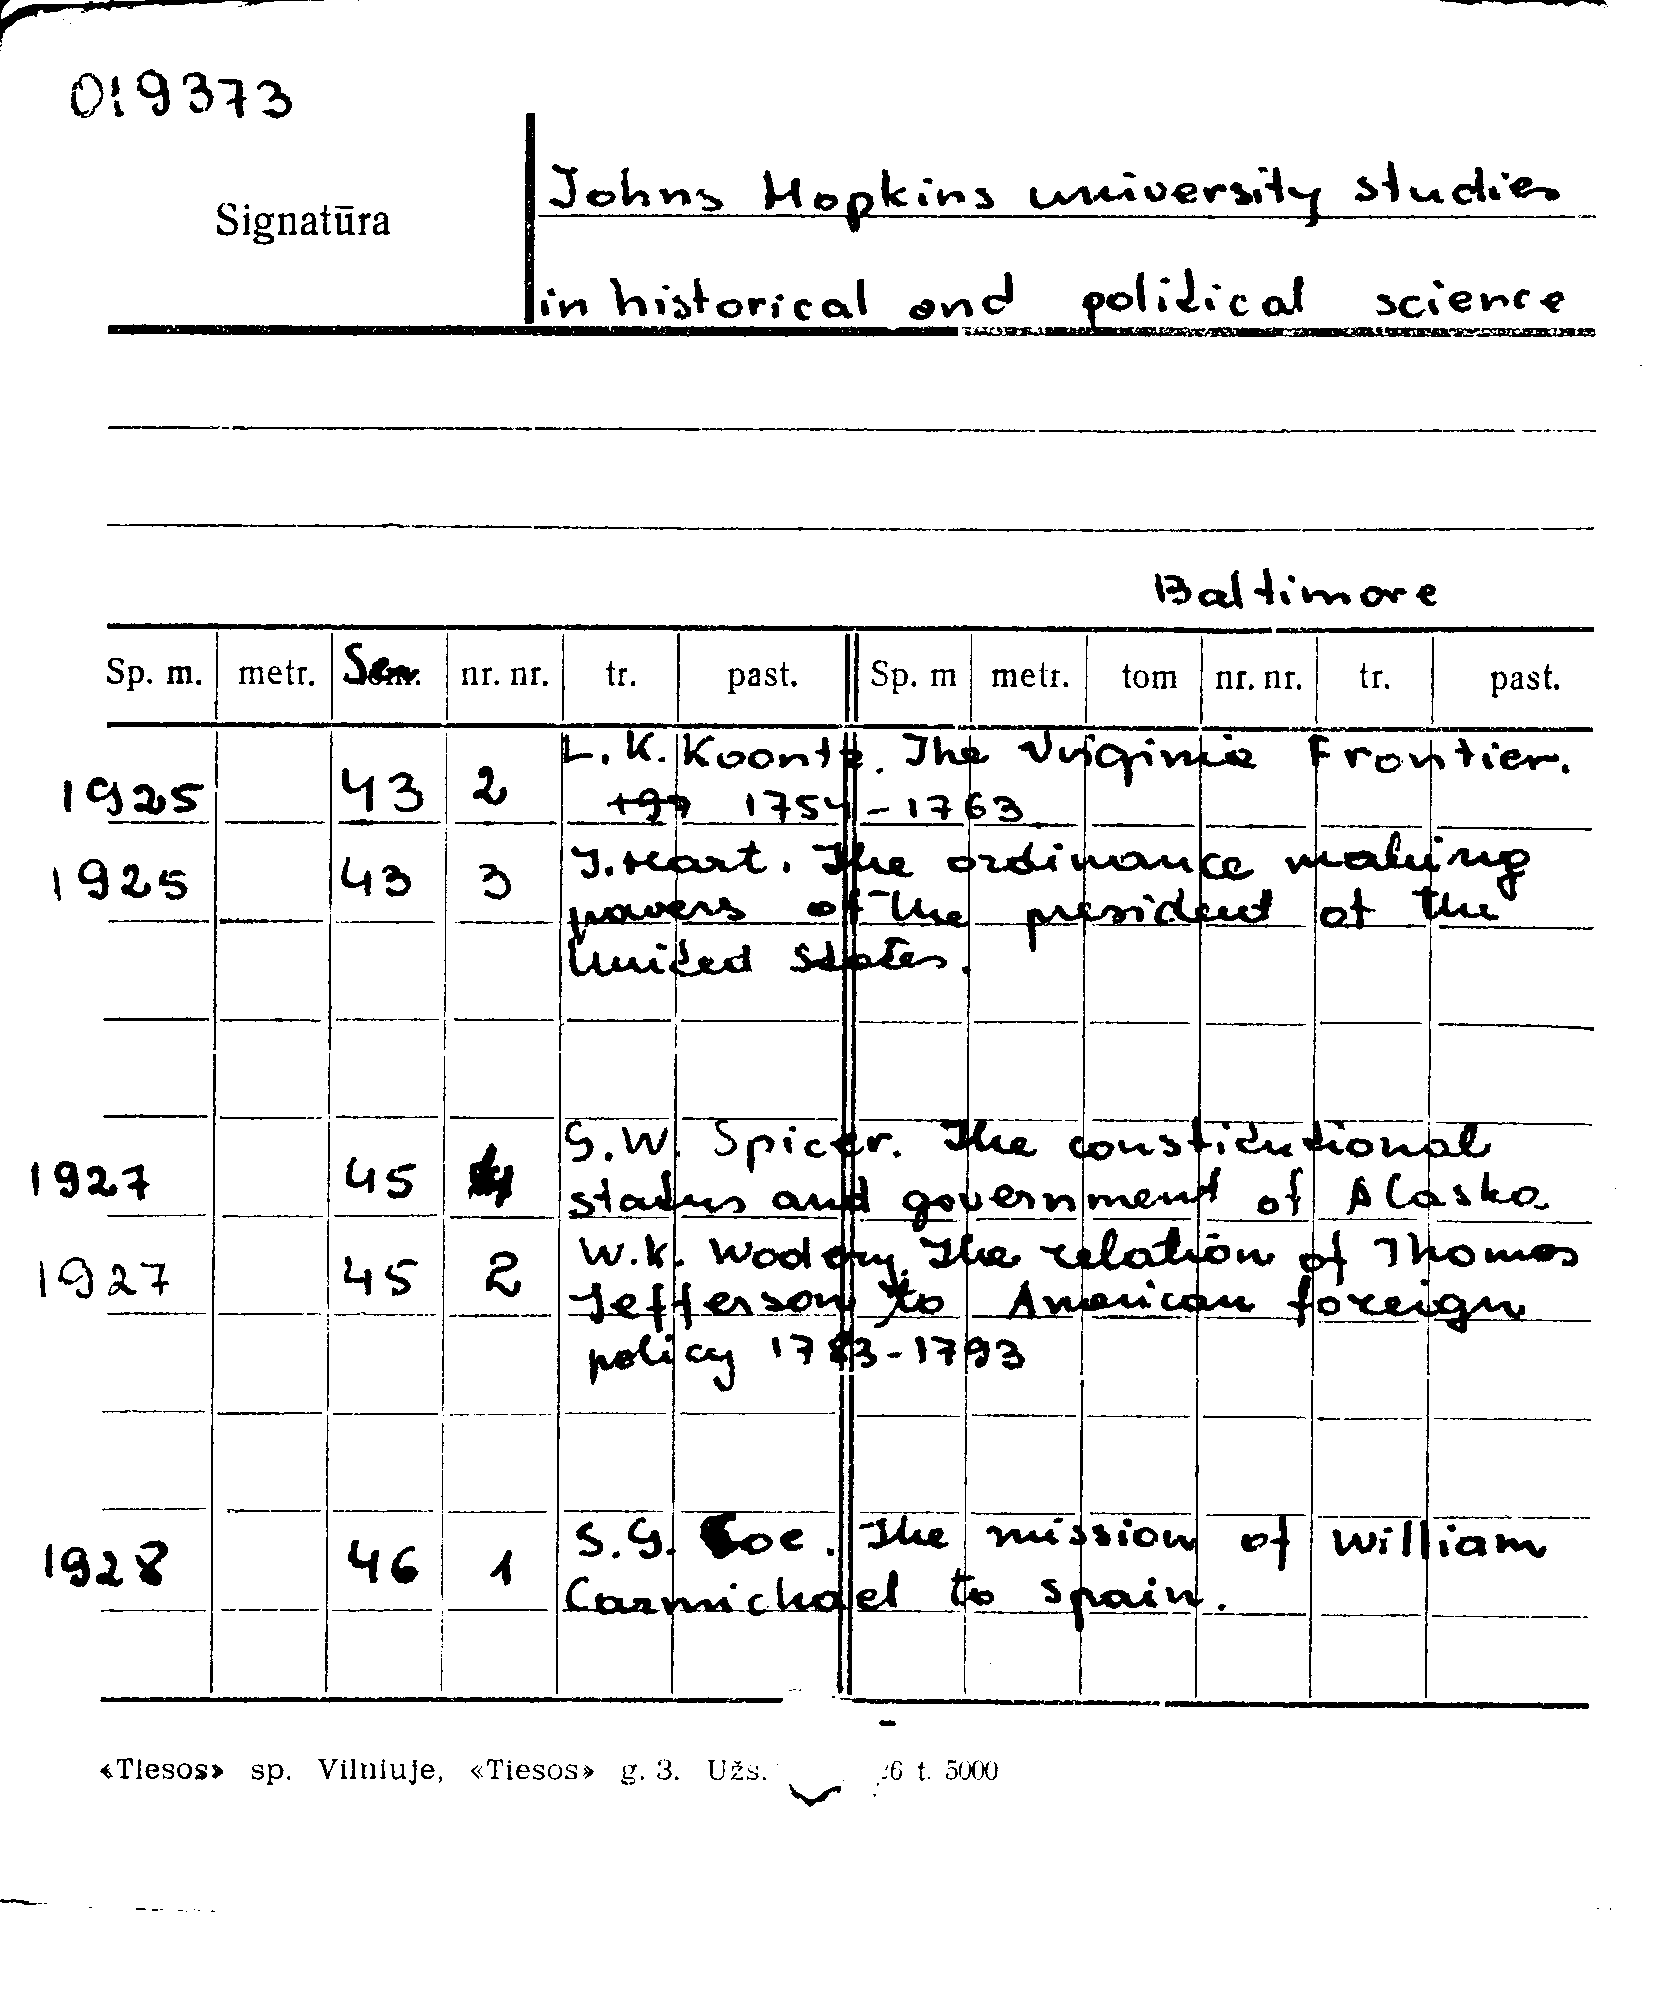 019373
Signatūra
Johns Hopkins university studies
in historical and political science
Baltimore
Sp. m. metr. Ser. nr. nr. tr. past. Sp. m metr. tom nr. nr. tr. past.
1925 43 2 L. K. Koontz. The Virginia Frontier.
1754-1763
1925 43 3 J. Hart. The ordinance making
powers of the president of the
United States.
1927 45 4 G.W. Spicer. The constitutional
status and government of Alaska
1927 45 2 W.K. Woolery. The relation of Thomas
Jefferson to American foreign
policy 1783-1793
1928 46 1 S.G. Coe. The mission of William
Carmichael to Spain.
«Tiesos» sp. Vilniuje, «Tiesos» g. 3. Užs. 6 t. 5000